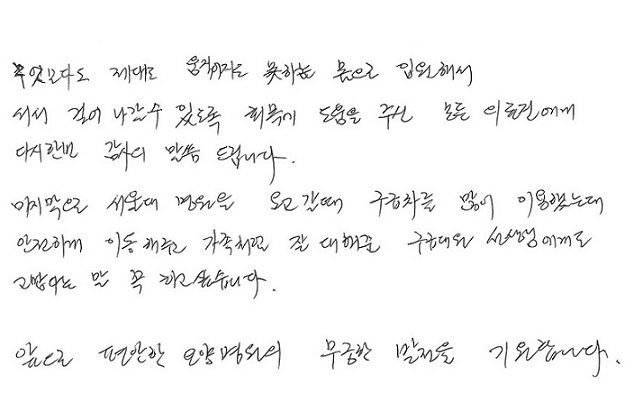 무엇보다도 제대로 움직이지도 못하는 몸으로 입원해서
서서 걸어 나갈수 있도록 회복에 도움을 주신 모든 의료진에게
다시한번 감사의 말씀 드립니다.
마지막으로 서울대 병원을 오고 갈때 구급차를 많이 이용했는데
안전하게 이동 해주고 가족처럼 잘 대해준 구급대원 선생님에게도
고맙다는 말 꼭 하고 싶습니다.
앞으로 편안한 요양병원의 무궁한 발전을 기원합니다.